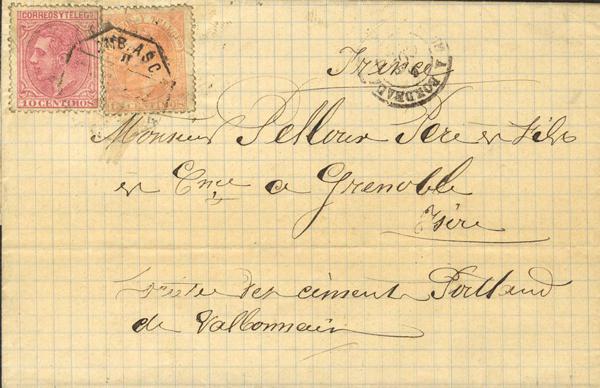 CORREOS Y TELEG
10 CENTIMOS
AMB. ASC
A BORDEAU
France
Monsieur Pelloux Père et Fils
en Cie a Grenoble
Isère
des ciments Portland
de Valbonnais